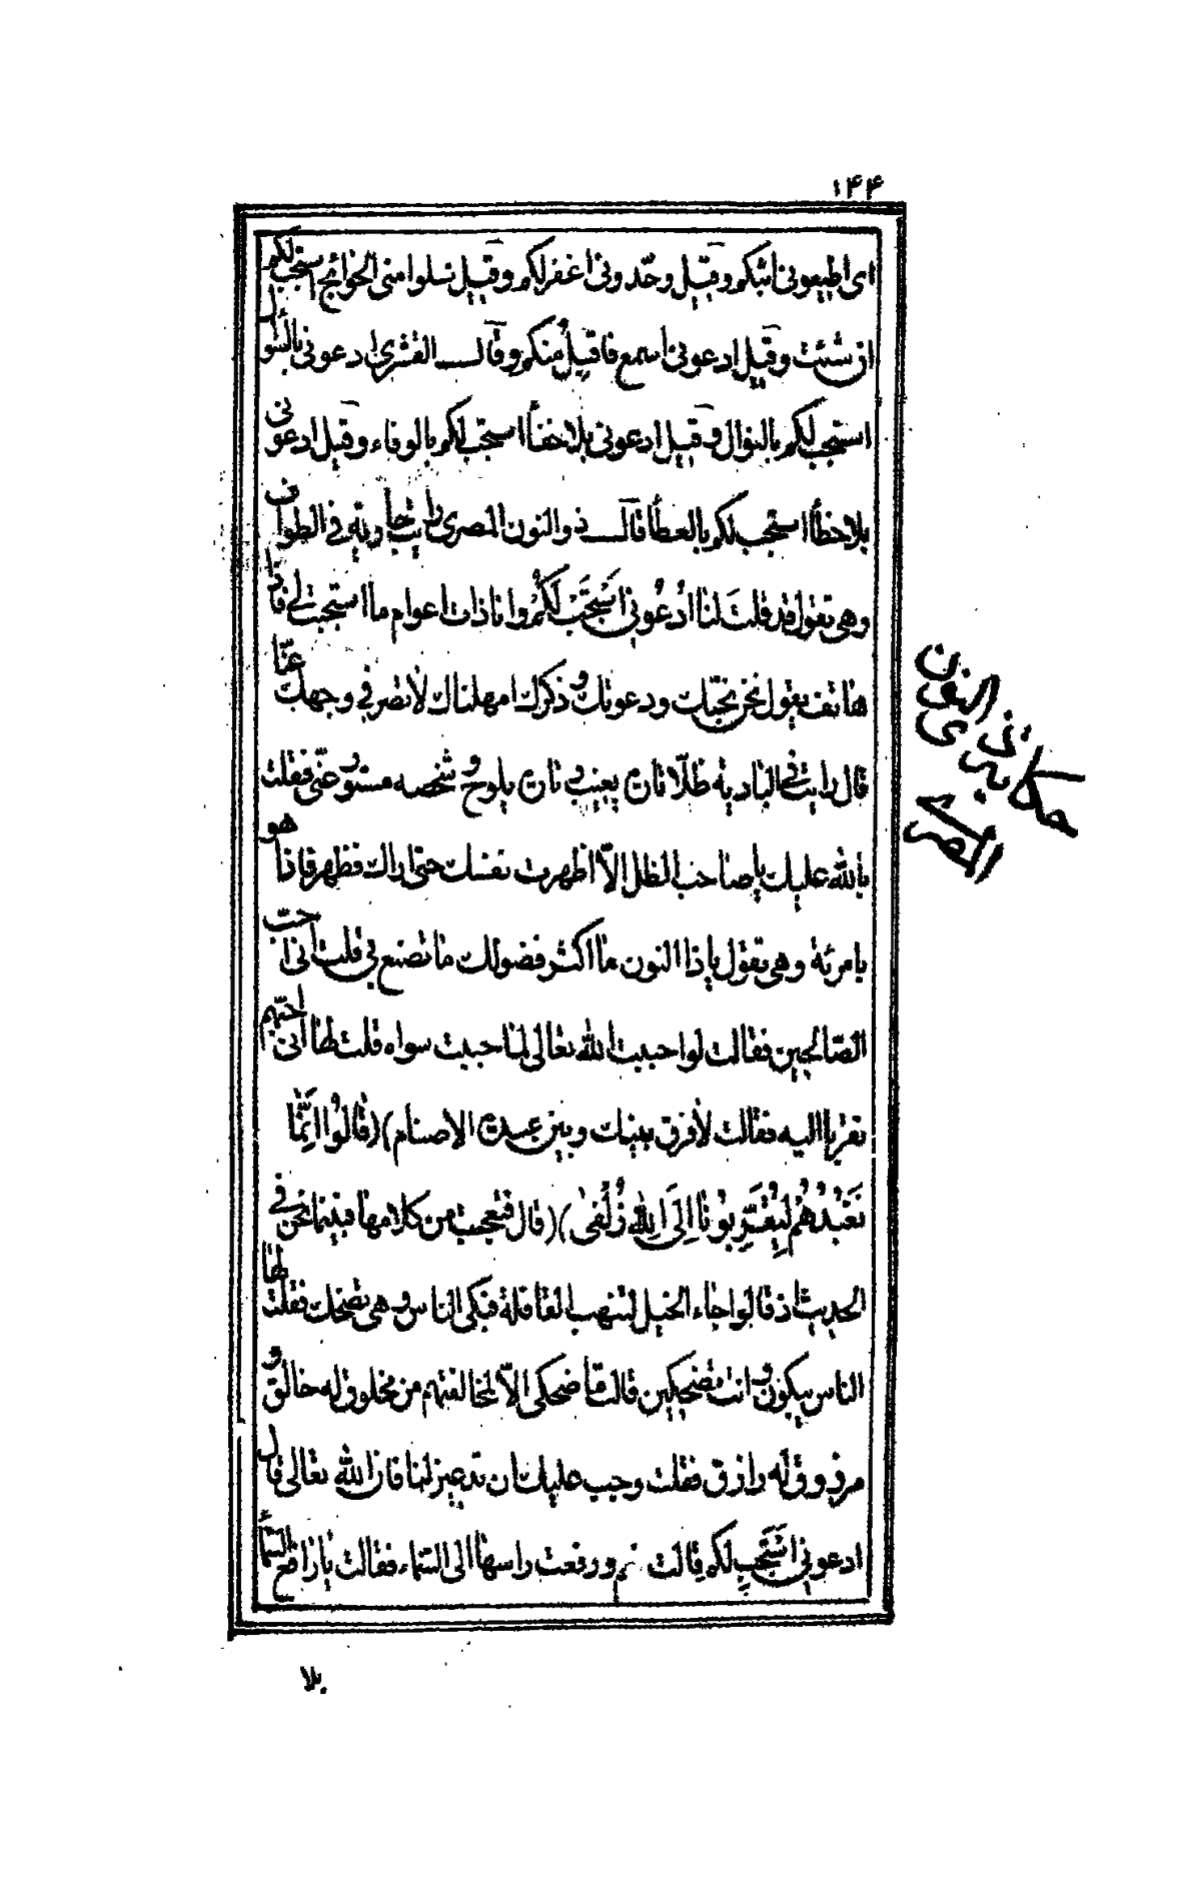 ۱۴۴
ای اطیعونی اثبکم وقیل وحّدونی اغفرلکم وقیل سلوا منی الحوائج استجب لکم
ان شئت وقیل ادعونی اسمع فاقیل منکم وقال القشری ادعونی بالسّؤال
استجب لکم بالنوال وقیل ادعونی بلا جفأ استجب لکم بالوفاء وقیل ادعونی
بلا خطأ استجب لکم بالعطأ قال ذوالنون المصری رایت جاریة فی الطواف
وهی تقول قد قلت لنا اُدْعُونی اَسْتَجِبْ لَکُمْ وانا ذات اعوام ما استجبت لی فاذا
هاتف یقول نحن نحبّک ودعوتک وذکرک امهلناک لا تصرفی وجهک عنّا
قال رایت فی البادیة ظلّا تارة یغیب وتارة یلوح وشخصه مستور عنّی فقلت
بالله علیک یا صاحب الظل الاّ اظهرت نفسک حتی اراک فظهر فاذا هو
بامرئة وهی تقول یا ذا النون ما اکثر فضولک ما تصنع بی قلت انی احبّ
الصّالحین فقالت لو احببت الله تعالی لما احببت سواه قلت لها انی احبّهم
تقربا الیه فقالت لا فرق بینک وبین عبدة الاصنام)(قٰالُوا اِنَّمٰا
نَعْبُدُهُمْ لِیُقَرِّبُونٰا اِلَی اللهِ زُلْفیٰ)(قال فتعجبت من کلامها فبینما نحن فی
الحدیث اذ قالوا جاء الخیل لتنهب القافلة فبکی الناس وهی تضحک فقلت لها
الناس یبکون وانت تضحکین قالت ما ضحکی الاّ لمخالفتهم من مخلوق له خالق و
مرزوق له رازق فقلت وجب علیک ان تدعین لنا فان الله تعالی قال
ادعونی اَسْتَجِب لکم قالت نعم ورفعت راسها الی السّماء فقالت یا رافع السّمأ
بلا
حکایة ذی النون
المصری